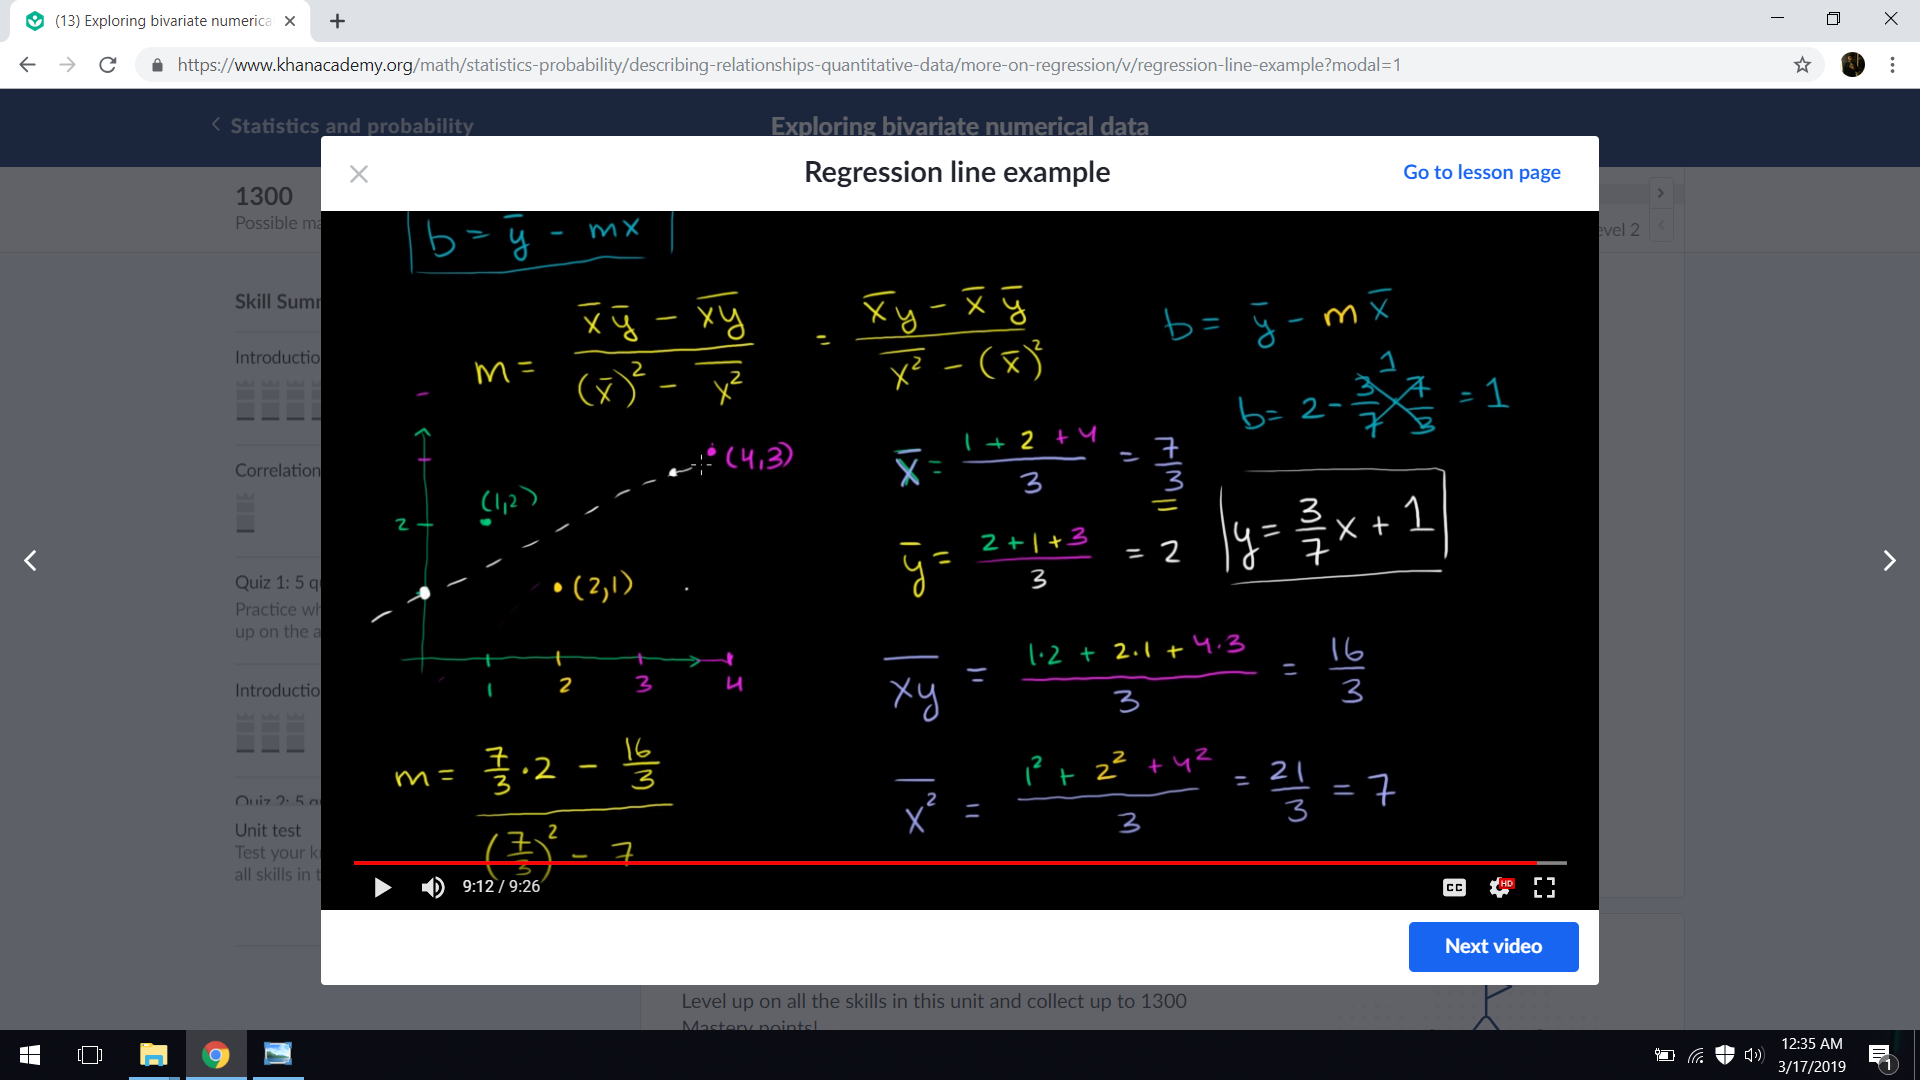 (13) Exploring bivariate numerica
https://www.khanacademy.org/math/statistics-probability/describing-relationships-quantitative-data/more-on-regression/v/regression-line-example?modal=1
Statistics and probability
Exploring bivariate numerical data
Regression line example
Go to lesson page
1300
Possible ma
evel 2
Skill Summ
Introductio
Correlation
Quiz 1: 5 q
Practice wh
up on the a
Introductio
Quiz 2: 5 q
Unit test
Test your k
all skills in t
b = y̅ - mx
m = (x̅ y̅ - x̅y̅) / ((x̅)² - x̅²) = (x̅y̅ - x̅ y̅) / (x̅² - (x̅)²)
b = y̅ - m x̅
b = 2 - 3/7 7/3 = 1
1
(4,3)
(1,2)
2
(2,1)
1 2 3 4
x̅ = (1 + 2 + 4) / 3 = 7/3
y̅ = (2 + 1 + 3) / 3 = 2
y = 3/7 x + 1
x̅y̅ = (1·2 + 2·1 + 4·3) / 3 = 16/3
m = (7/3 · 2 - 16/3) / ((7/3)² - 7)
x̅² = (1² + 2² + 4²) / 3 = 21/3 = 7
9:12 / 9:26
CC
HD
Next video
Level up on all the skills in this unit and collect up to 1300
Mastery points!
12:35 AM
3/17/2019
1